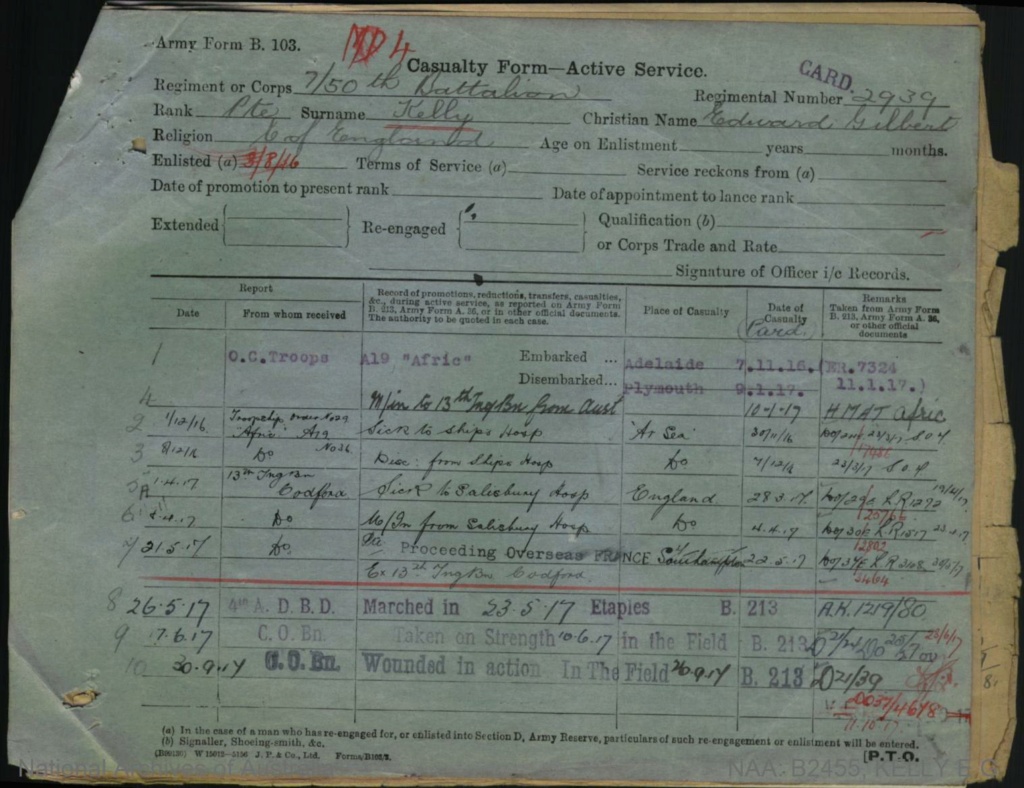 Army Form B. 103. MD 4
Casualty Form—Active Service. CARD.
Regiment or Corps 7/50th Battalion Regimental Number 2939
Rank Pte Surname Kelly Christian Name Edward Gilbert
Religion C of England Age on Enlistment years months.
Enlisted (a) 3/8/16 Terms of Service (a) Service reckons from (a)
Date of promotion to present rank Date of appointment to lance rank
Extended Re-engaged Qualification (b)
or Corps Trade and Rate
Signature of Officer i/c Records.
Report
Date From whom received
Record of promotions, reductions, transfers, casualties, &c., during active service, as reported on Army Form B. 213, Army Form A. 36, or in other official documents. The authority to be quoted in each case.
Place of Casualty
Date of Casualty
Card.
Remarks Taken from Army Form B. 213, Army Form A. 36, or other official documents
1 O.C. Troops A19 "Afric" Embarked ... Adelaide 7.11.16. (ER.7324
Disembarked... Plymouth 9.1.17. 11.1.17.)
4 M/in to 13th Ing Bn from Aust 10-1-17 HMAT Afric
2 1/12/16 Troopship "Afric" A19 Sick to Ships Hosp "At Sea" 30/11/16
3 8/12/16 Do No 36 Disc: from Ships Hosp Do 7/12/16 23/3/17
5A 1.4.17 13th Ing Bn Codford Sick to Salisbury Hosp England 28.3.17 LR1272
6 4.17 Do M/In from Salisbury Hosp Do 4.4.17 LR1517
7 21.5.17 Do Proceeding Overseas FRANCE Southampton 22.5.17
Ex 13th Ing Bn Codford
8 26.5.17 4th A. D. B. D. Marched in 23.5.17 Etaples B. 213 A.K.1219/80
9 17.6.17 C. O. Bn. Taken on Strength 10.6.17 in the Field B. 213
10 30.9.17 C. O. Bn. Wounded in action In The Field 26.9.17 B. 213 D21/39
DO37/4678
11-10-17
(a) In the case of a man who has re-engaged for, or enlisted into Section D, Army Reserve, particulars of such re-engagement or enlistment will be entered.
(b) Signaller, Shoeing-smith, &c.
W 15015—5156 J. P. & Co., Ltd. Forms/B103/2. [P.T.O.
National Archives of Australia NAA: B2455, KELLY E G